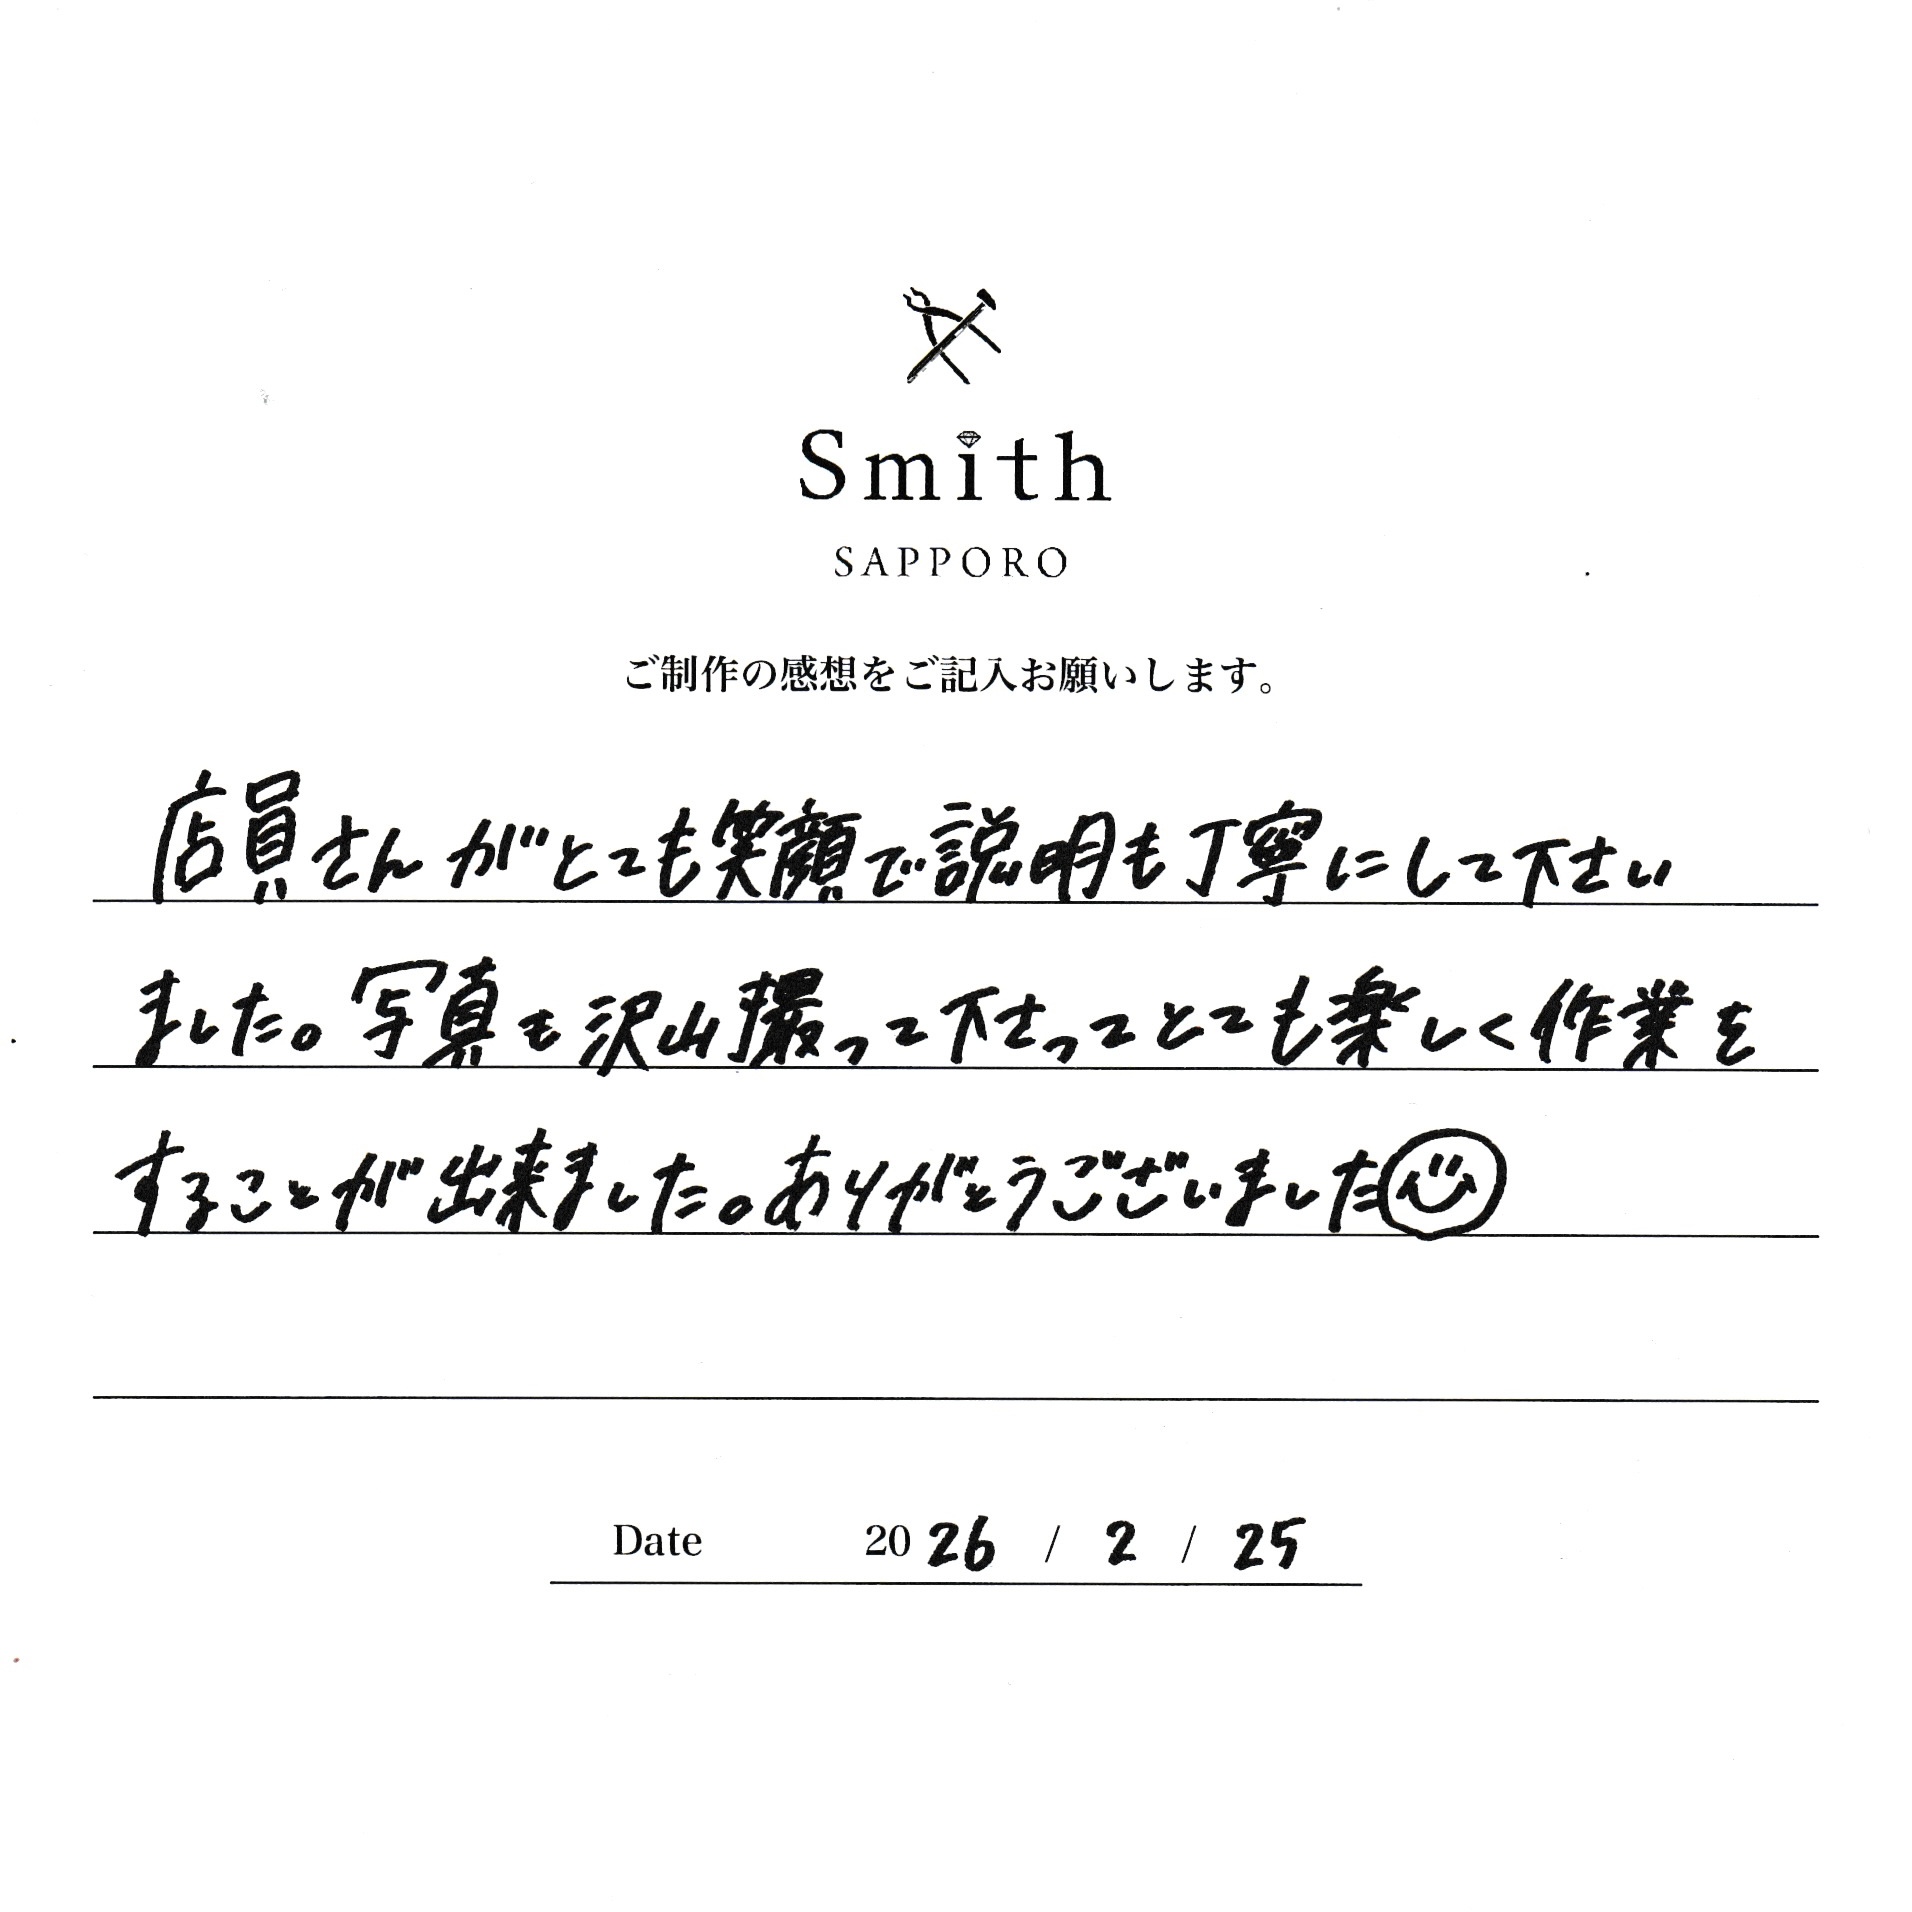 Smith
SAPPORO
ご制作の感想をご記入お願いします。
店員さんがとても笑顔で説明も丁寧にして下さい
ました。写真も沢山撮って下さってとても楽しく作業を
することが出来ました。ありがとうございました
Date 2026 / 2 / 25